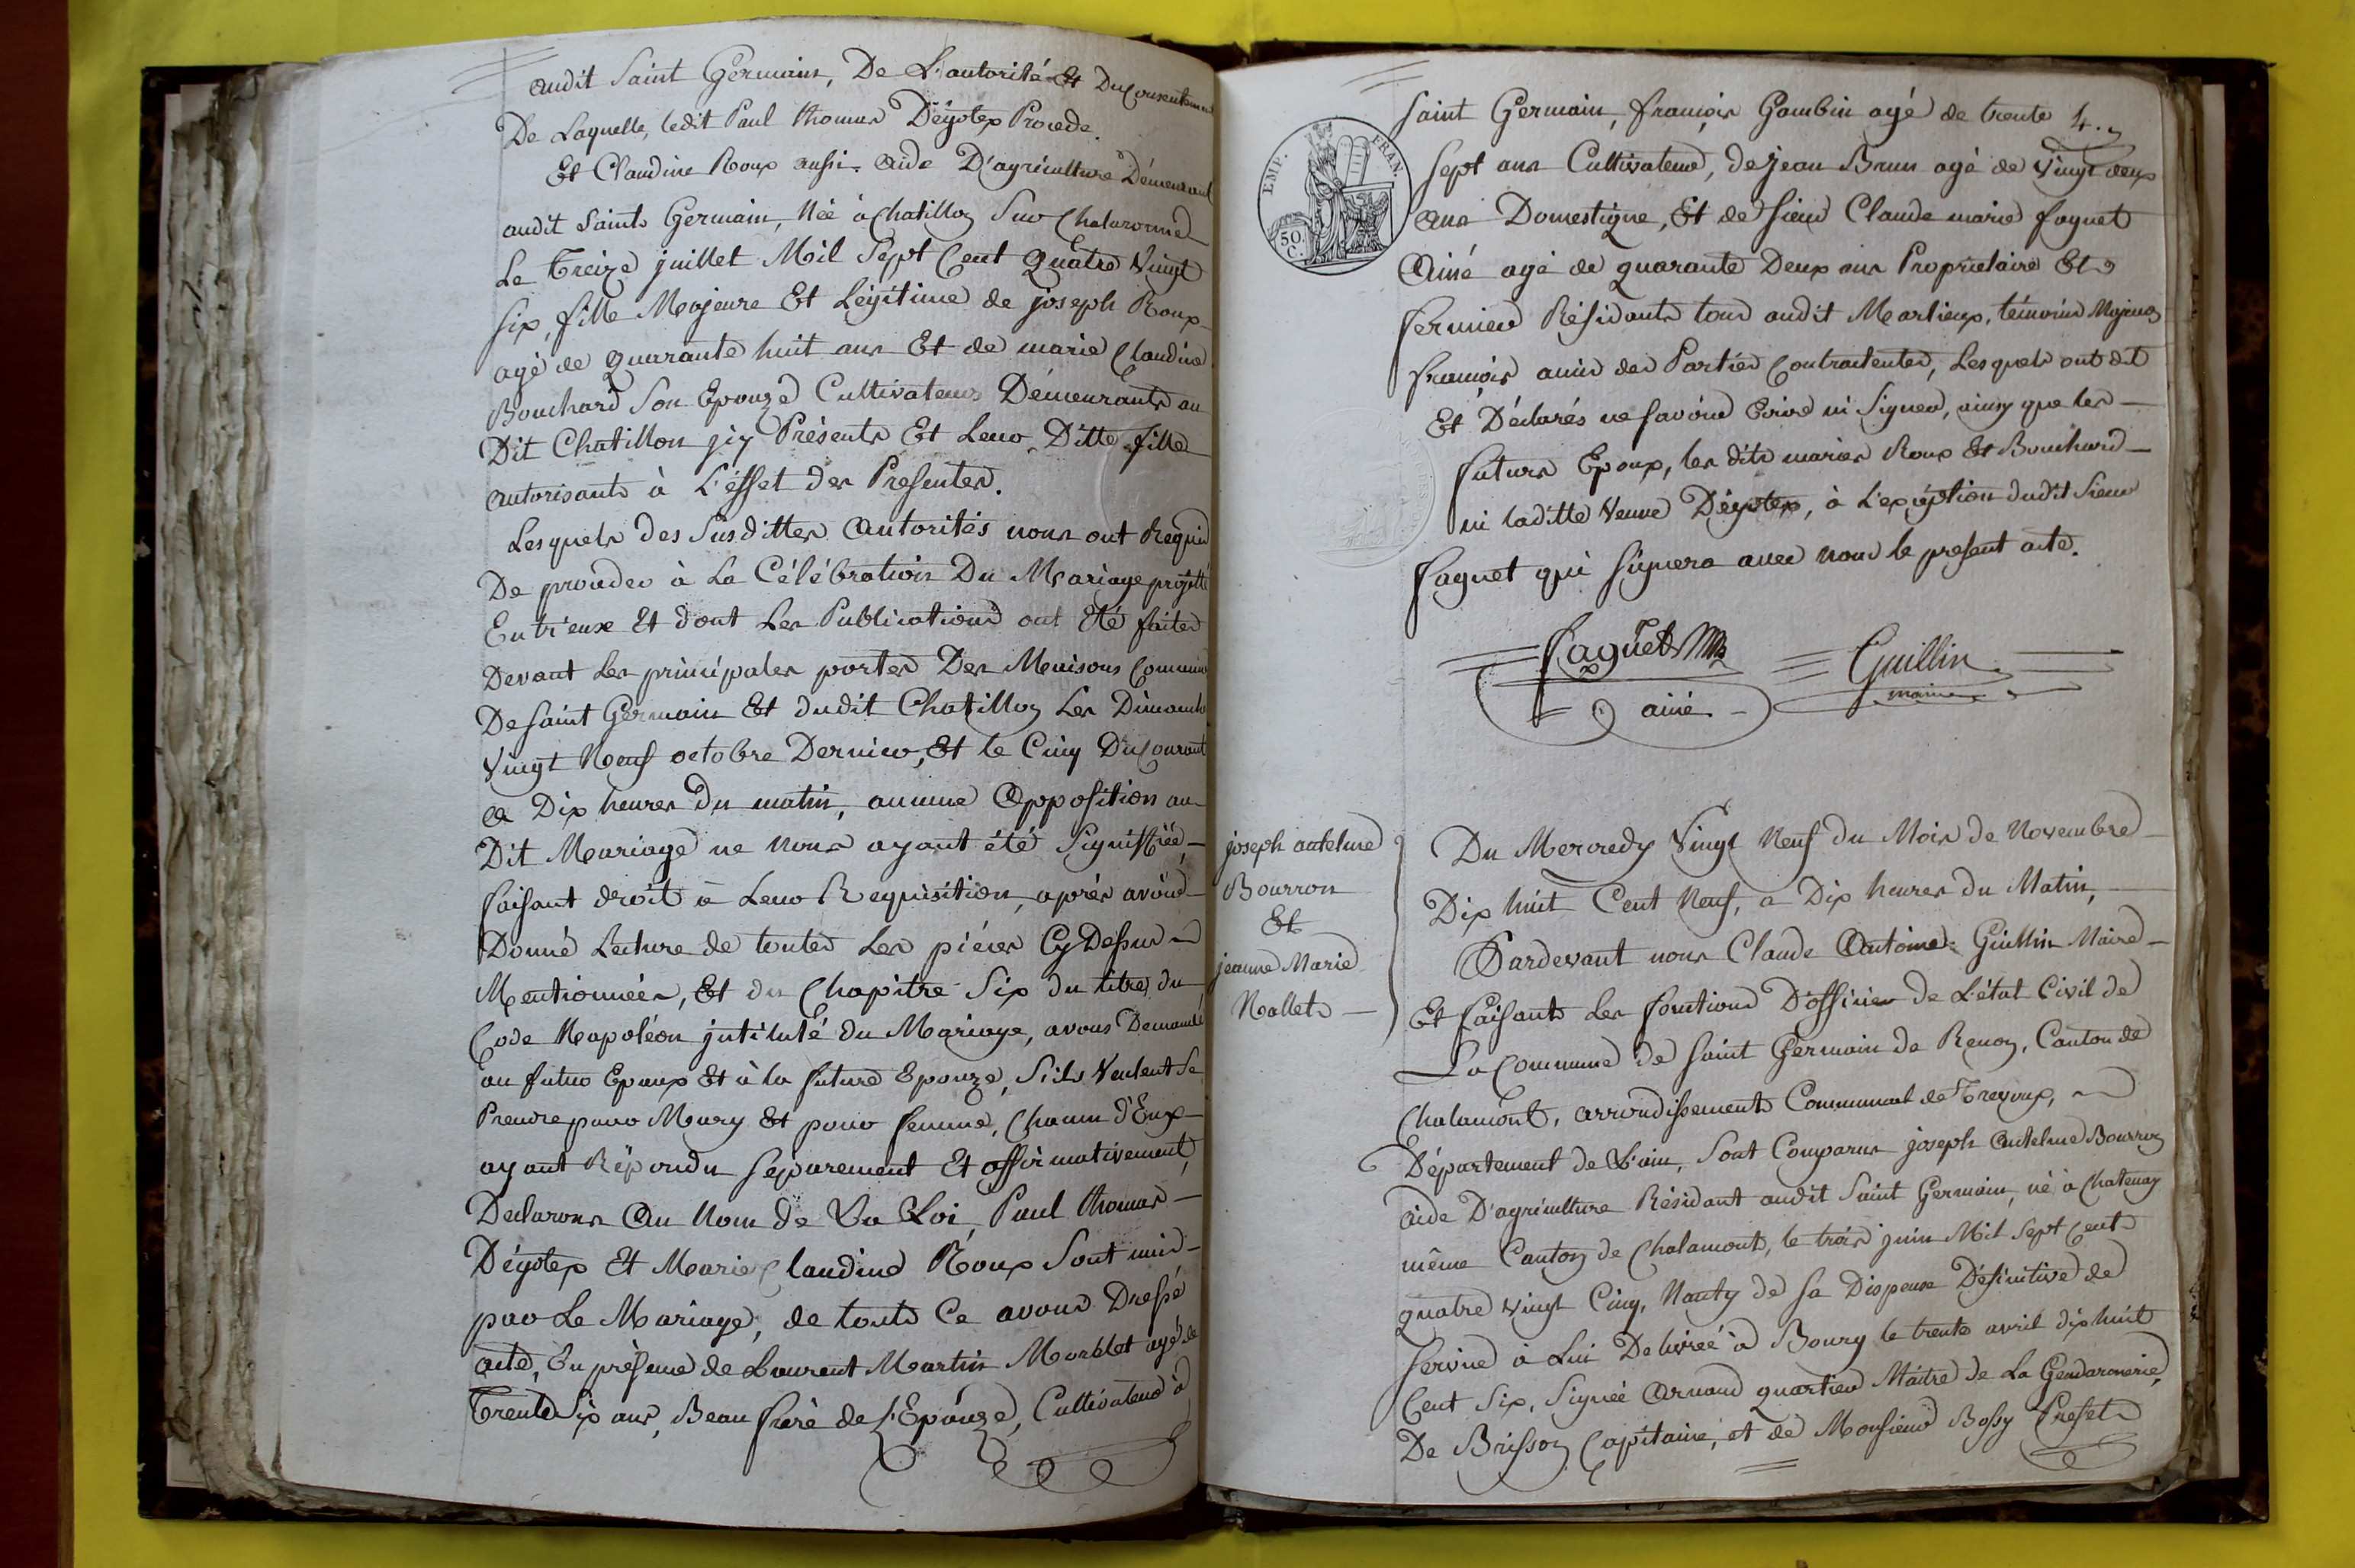 audit Saint Germain, De L'autorité Et Du Consentement
De Laquelle, ledit Paul thomas Dégotex Procede.
Et Claudine Roux aussi Aide D'agriculture Démeurant
audit Saint Germain, Née à Chatillon Sur Chalaronne
Le Treize juillet Mil Sept Cent Quatre Vingt
Six, fille Majeure Et Légitime de joseph Roux
agé de Quarante huit ans Et de marie Claudine
Bouchard Son Epouze Cultivateurs Démeurants au
Dit Chatillon jcy Présents Et Leur Ditte fille
autorisants à L'éffet des Presentes.
Lesquels des Susdittes Autorités nous ont Requis
De proceder à La Célébration Du Mariage projetté
Entr'eux Et dont Les Publications ont Eté faites
Devant Les principales portes Des Maisons Commune
De Saint Germain Et dudit Chatillon Les Dimanche
Vingt Neuf octobre Dernier, Et le Cinq Du Courant
a Dix heures Du matin, aucune Opposition au
Dit Mariage ne Nous ayant été Signiffiée,
faisant droit à Leur Requisition, après avoir
Donné Lecture de toutes Les piéces Cy Dessus
Mentionnées, Et du Chapitre Six du titre du
Code Napoléon jntitulé du Mariage, avons Demandé
au futur Epoux Et à la future Epouze, S'ils Veulent Se
Prendre pour Mary Et pour femme, Chacun d'Eux
ayant Répondu Séparement Et affirmativement,
Declarons Au Nom de La Loi, Paul thomas
Dégotex Et Marie Claudine Roux Sont unis
par Le Mariage, de tout Ce avons Dressé
acte, En présence de Laurent Martin Morblet agé de
Trente Six ans, Beau frere de L'Epouze, Cultivateur à
EMP. FRAN.
50. C.
4.
Saint Germain, françois Gambin agé de trente
Sept ans Cultivateur, de jean Brun agé de Vingt deux
ans Domestique, Et de Sieur Claude marie faguet
Ainé agé de quarante Deux ans Proprietaire Et
fermier Résidants tous audit Marlieux, témoins Majeurs
françois amis des Parties Contractentes, Lesquels ont dit
Et Déclarés ne Savoir Ecrire ni Signer, ainsy que les
futurs Epoux, les dits mariés Roux Et Bouchard
ni laditte Veuve Dégotex, à L'exception dudit Sieur
faguet qui Signera avec nous le present acte.
Faguet
ainé
Guillin
maire
joseph antelme
Bourron
Et
jeanne Marie
Nallet
Du Mercredy Vingt Neuf du Mois de Novembre
Dix huit Cent Neuf, a Dix heures du Matin,
Pardevant nous Claude Antoine Guillin Maire
Et faisant Les fonctions D'officier de L'état Civil de
La Commune de Saint Germain de Renon, Canton de
Chalamont, arrondissement Communal de Trevoux,
Département de L'ain, Sont Comparus joseph Antelme Bourron
aide D'agriculture Résidant audit Saint Germain, né à Chatenay
même Canton de Chalamont, le trois juin Mil Sept Cent
quatre Vingt Cinq, Nanty de Sa Dispense Définitive de
Service à Lui Delivrée à Bourg le trente avril dix huit
Cent Six, Signée Arnaud quartier Maitre de La Gendarmerie,
De Brisson Capitaine, et de Monsieur Bossy Prefet